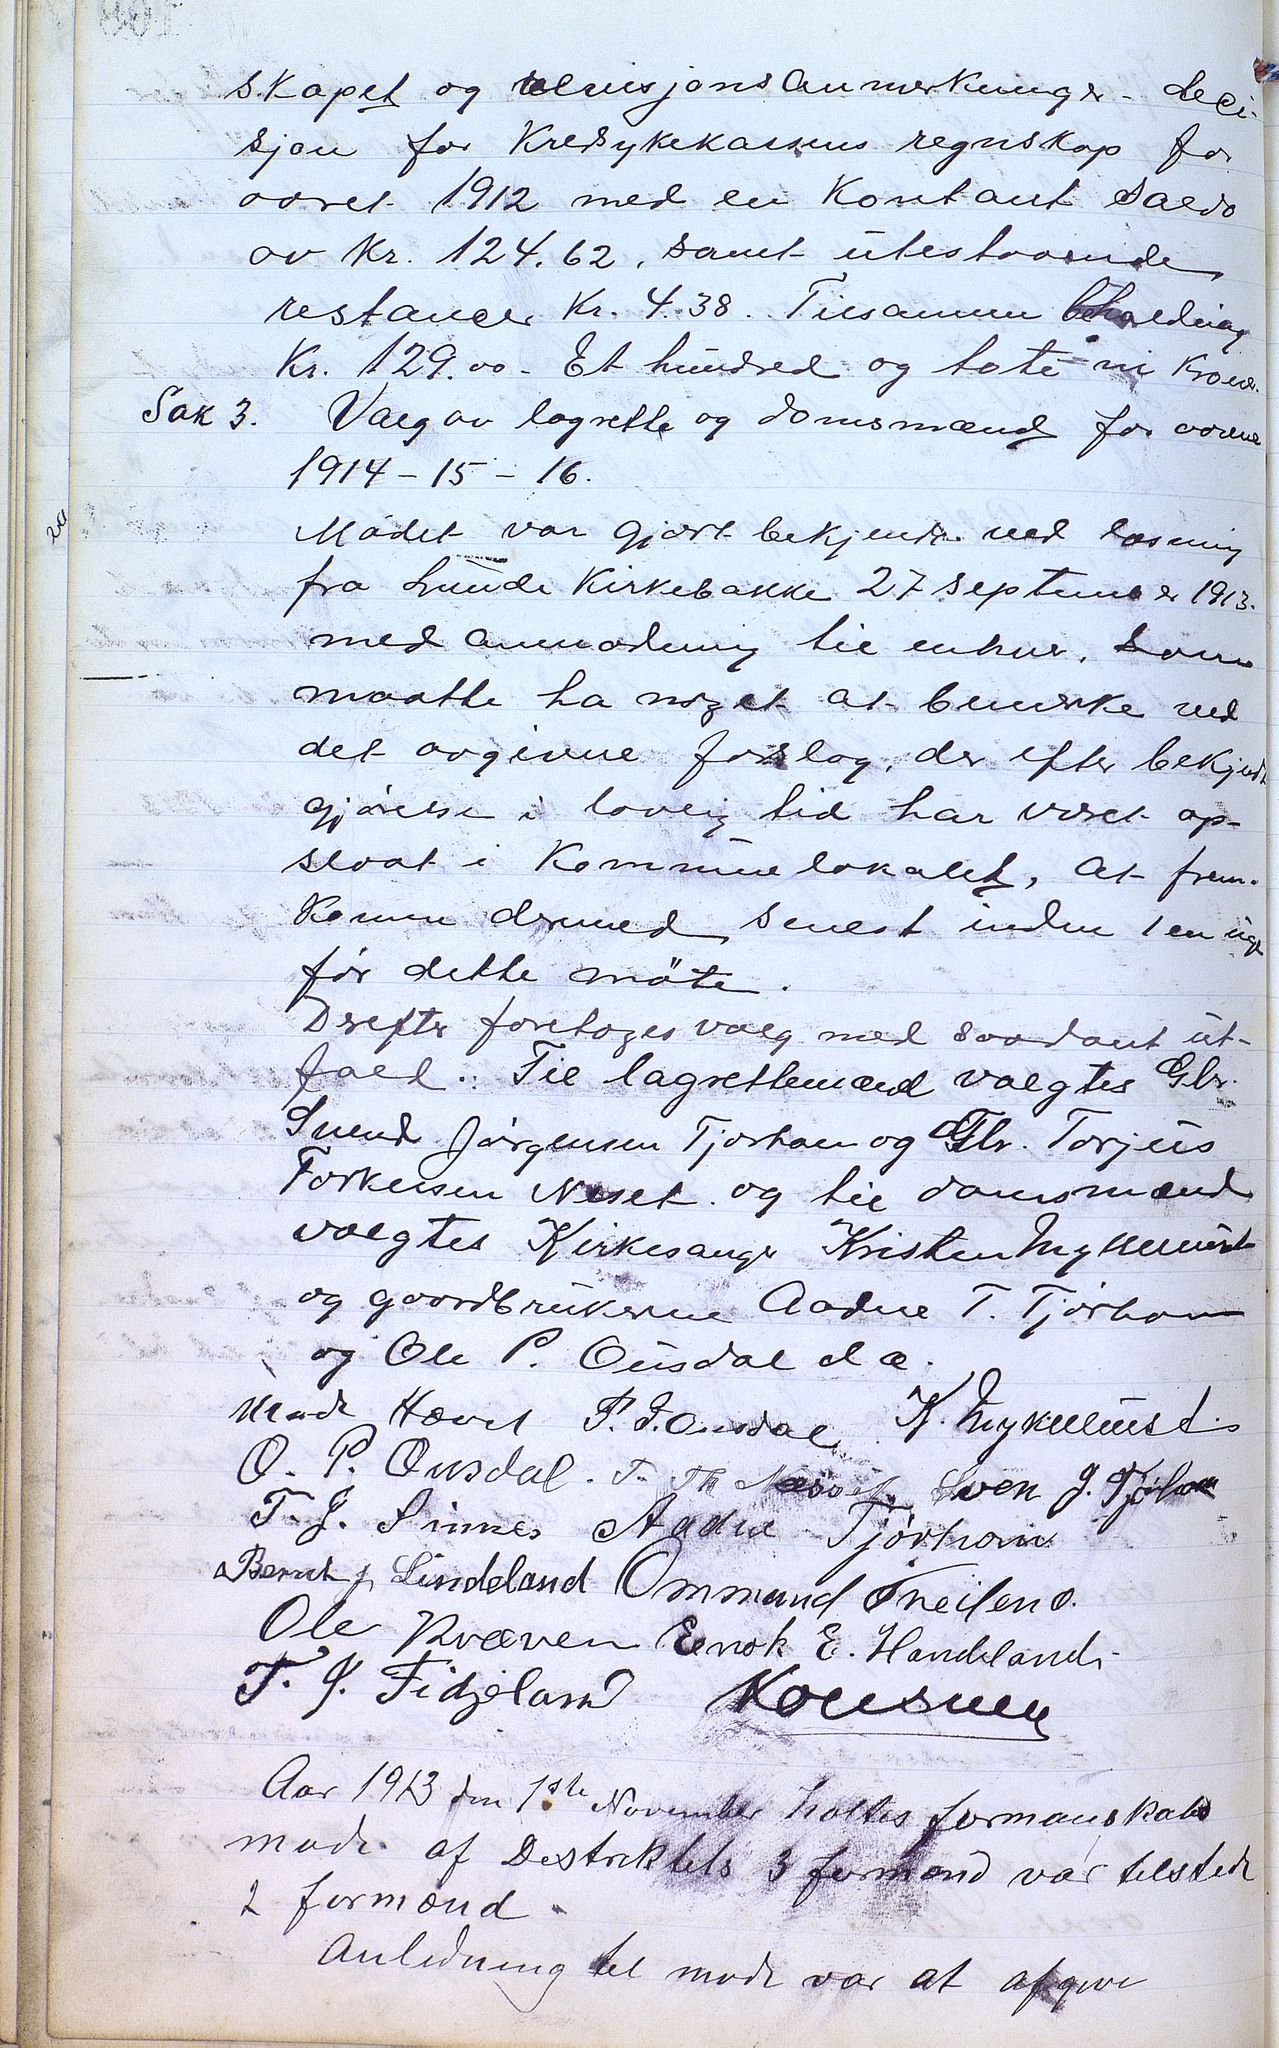 skapet og revisjonsanmerkninger - deci-
sjon for Kredsykekassens regnskap for
aaret 1912 med en Kontant Saldo
av Kr. 124.62, samt utestaaende
restancer Kr. 4.38. Tilsammen beholdning
Kr. 129.00 - Et hundred og tote-ni Kroner.
Sak 3. Valg av lagrette og domsmænd for aarene
1914 - 15 - 16.
Mödet var gjort bekjendt ved læsning
fra Lunde Kirkebakke 27 september 1913.
med anmodning til enhver, som
maatte ha noget at bemerke ved
det avgivne forslag, der efter bekjendt
gjörelse i lovlig tid har været op-
slaat i Kommunelokalet, at frem-
komme dermed senest inden 1 en uge
för dette möte.
Derefter foretoges valg med saadant ut-
fald.: Til lagrettemænd valgtes Gbr.
Svend Jörgensen Tjorhom og Gbr. Torjus
Torkelsen Neset og til domsmænd
valgtes Kirkesanger Kristen Myklemist
og gaardbrukerne Aadne T. Tjörhom
og Ole P. Ousdal d æ.
Møde Hævet P. T. Ousdal K. Myklemist
O. P. Ousdal. T. Th Næsset Sven J. Tjørhom
T. J. Sinnes Aadne Tjörhom
Bernt J Lindeland Ommund Fneilend.
Ole Kvæven Enok E. Handeland
T. J. Fidjeland
Aar 1913 den 1ste November holtes formanskabs
møde af Destriktets 3 formænd var telstede
2 formænd.
Anledning tel møde var at afgive